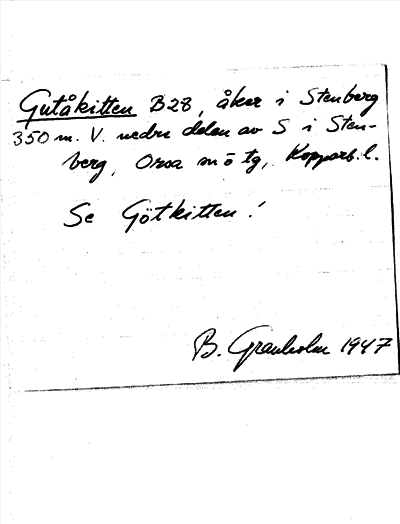 Gutåkitten B28, åker i Stenberg
350 m. V. nedre delen av S i Sten-
berg, Orsa m ö tg, Kopparb. l.
Se Götkitten!
B. Granholm 1947